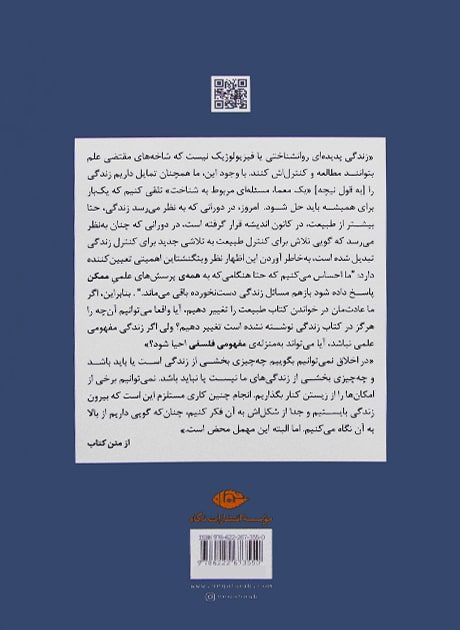 «زندگی پدیده‌ای روانشناختی یا فیزیولوژیک نیست که شاخه‌های مقتضی علم
بتوانند مطالعه و کنترل‌اش کنند. با وجود این، ما همچنان تمایل داریم زندگی
را [به قول نیچه] «یک معما، مسئله‌ای مربوط به شناخت» تلقی کنیم که یک‌بار
برای همیشه باید حل شود. امروز، در دورانی که به نظر می‌رسد زندگی، حتا
بیشتر از طبیعت، در کانون اندیشه قرار گرفته است، در دورانی که چنان به‌نظر
می‌رسد که گویی تلاش برای کنترل طبیعت به تلاشی جدید برای کنترل زندگی
تبدیل شده است، به‌خاطر آوردن این اظهار نظر ویتگنشتاین اهمیتی تعیین کننده
دارد: "ما احساس می‌کنیم که حتا هنگامی‌که به همه‌ی پرسش‌های علمیِ ممکن
پاسخ داده شود بازهم مسائل زندگی دست‌نخورده باقی می‌ماند.". بنابراین، اگر
ما عادت‌مان در خواندن کتاب طبیعت را تغییر دهیم، آیا واقعا می‌توانیم آن‌چه را
هرگز در کتاب زندگی نوشته نشده است تغییر دهیم؟ ولی اگر زندگی مفهومی
علمی نباشد، آیا می‌تواند به‌منزله‌ی مفهومی فلسفی احیا شود؟»
«در اخلاق نمی‌توانیم بگوییم چه‌چیزی بخشی از زندگی است یا باید باشد
و چه‌چیزی بخشی از زندگی‌های ما نیست یا نباید باشد. نمی‌توانیم برخی از
امکان‌ها را از زیستن کنار بگذاریم. انجام چنین کاری مستلزم این است که بیرون
زندگی بایستیم و جدا از شکل‌اش به آن فکر کنیم، چنان‌که گویی داریم از بالا
به آن نگاه می‌کنیم. اما البته این مهمل محض است.»
از متن کتاب
مؤسسه انتشارات نگاه